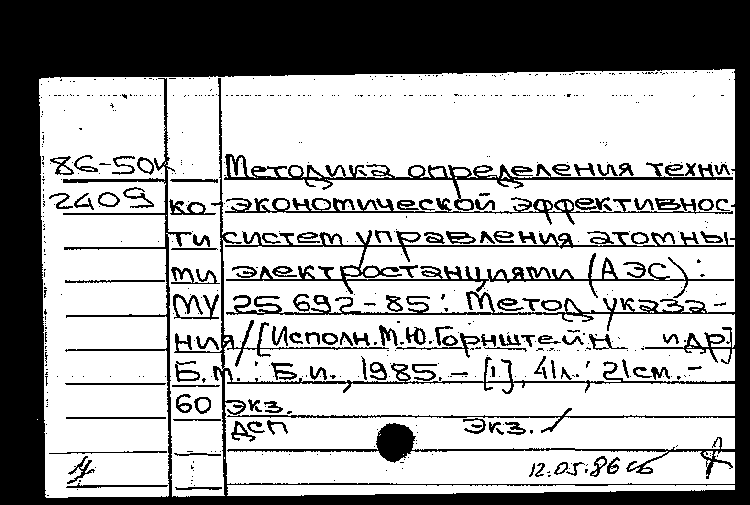 86-50к Методика определения техни-
2409 ко-экономической эффективнос-
ти систем управления атомны-
ми электростанциями (АЭС):
МУ 25 692-85: Метод. указа-
ния/[Исполн. М.Ю. Горнштейн и др]
Б.м.: Б.и., 1985. - [1], 41л.; 21см. -
60 экз.
ДСП экз. ✓
12.05.86